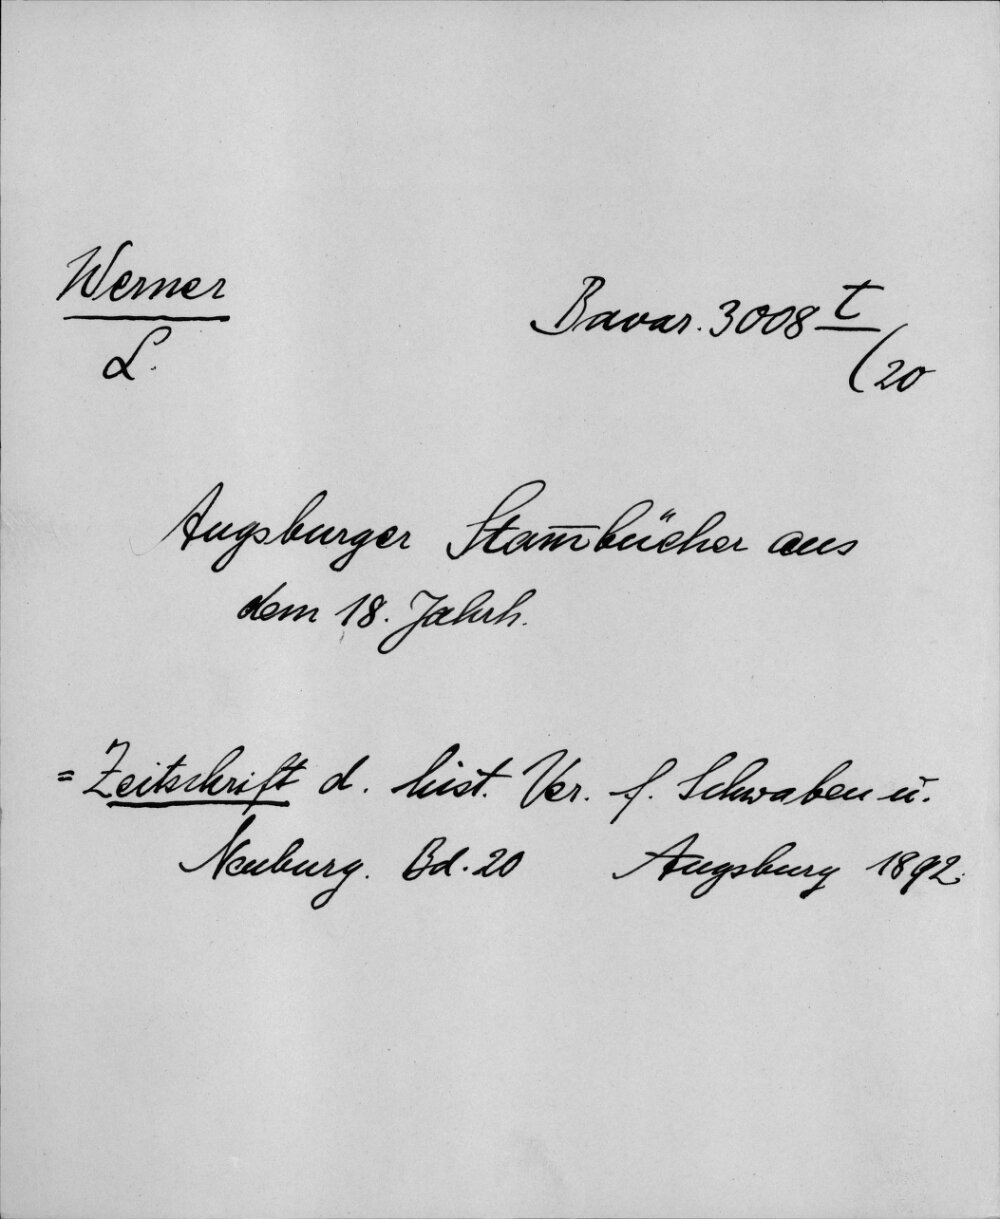 Werner
L.
Bavar. 3008 t
(20
Augsburger Stam̅bücher aus
dem 18. Jahrh.
= Zeitschrift d. hist. Ver. f. Schwaben u.
Neuburg. Bd. 20 Augsburg 1892.